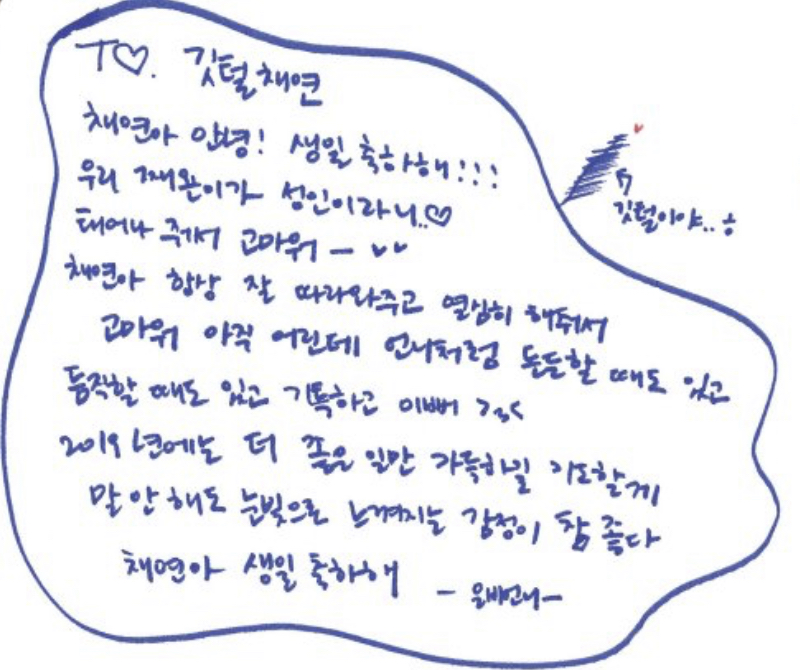 T♡. 깃털채연
채연아 안녕! 생일 축하해!!!
우리 째욘이가 성인이라니..♡
태어나 줘서 고마워 -
채연아 항상 잘 따라와주고 열심히 해줘서
고마워 아직 어린데 언니처럼 든든할 때도 있고
듬직할 때도 있고 기특하고 이뻐 >3<
2019년에는 더 좋은 일만 가득하길 기도할게
말 안 해도 눈빛으로 느껴지는 감정이 참 좋다
채연아 생일 축하해
- 은비언니 -
깃털이야..ㅎ